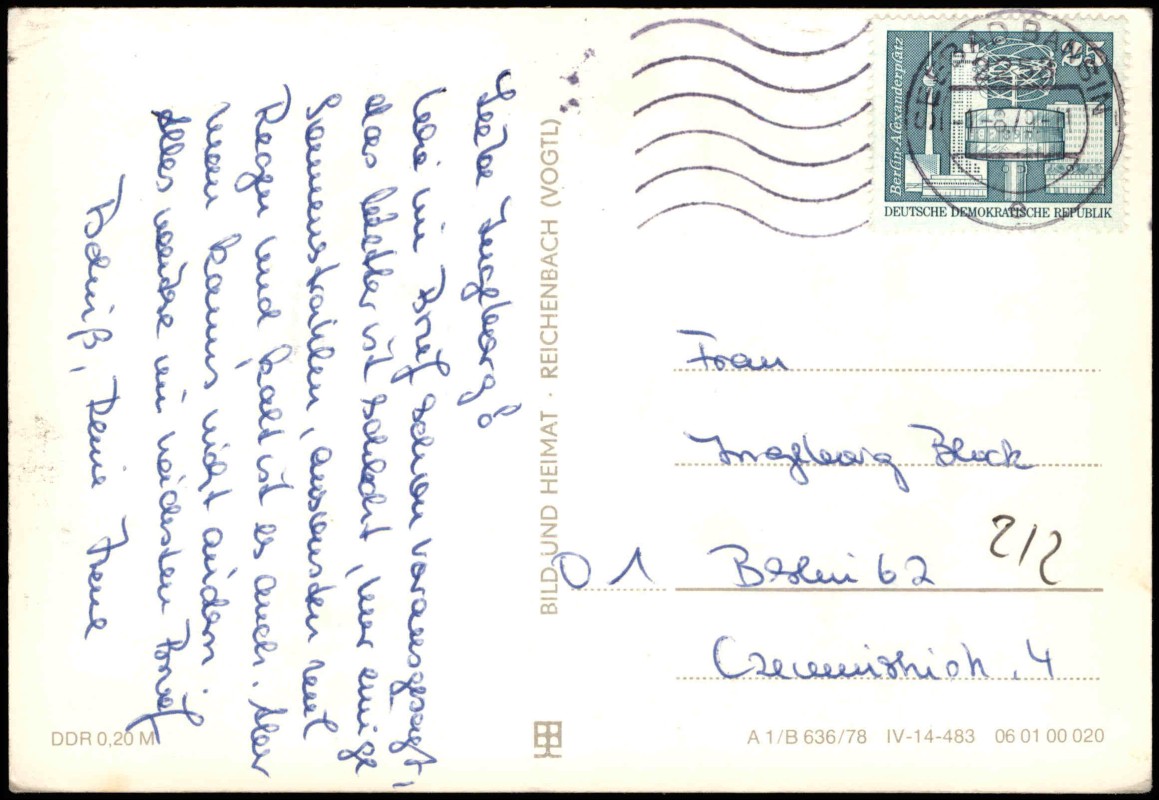 Liebe Ingeborg!
Wie im Brief schon vorausgesagt,
das Wetter ist schlecht, nur einige
Sonnenstrahlen, ansonsten viel
Regen und kalt ist es auch. Aber
man kanns nicht ändern!
Alles weitere im nächsten Brief
Tschüß, Deine Irene
BILD UND HEIMAT · REICHENBACH (VOGTL)
Berlin-Alexanderplatz
25
DEUTSCHE DEMOKRATISCHE REPUBLIK
SEEBAD BANSIN
2253
Frau
Ingeborg Block
D 1 Berlin 62
2/2
4
DDR 0,20 M
A 1/B 636/78 IV-14-483 06 01 00 020